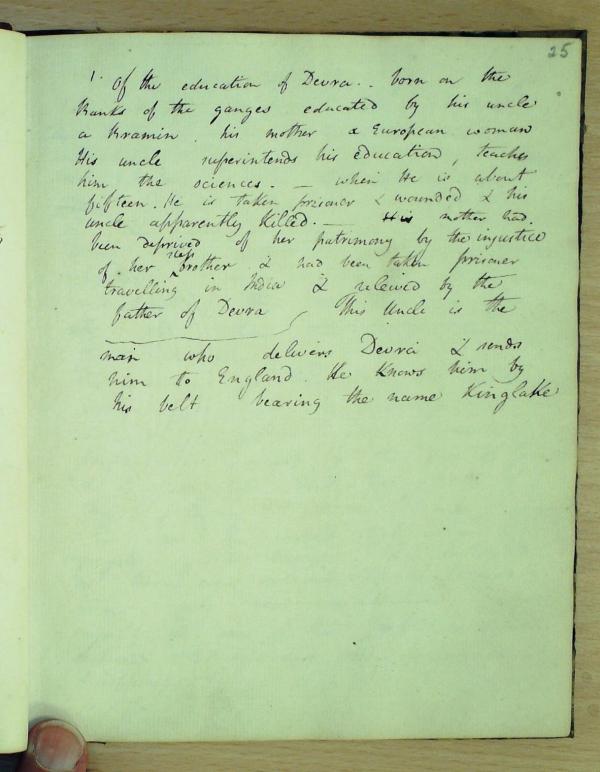 25
1. Of the education of Devra.. born on the
Banks of the ganges educated by his uncle
a Bramin. his mother a European woman
His uncle superintends his education, teaches
him the sciences. - — when He is about
fifteen. He is taken prisoner & wounded & his
uncle apparently killed. — His mother had.
been deprived of her patrimony by the injustice
of her step brother & had been taken prisoner
travelling in India & releived by the
father of Devra / This Uncle is the
man who delivers Devra & sends
him to England. He knows him by
his belt bearing the name Kinglake